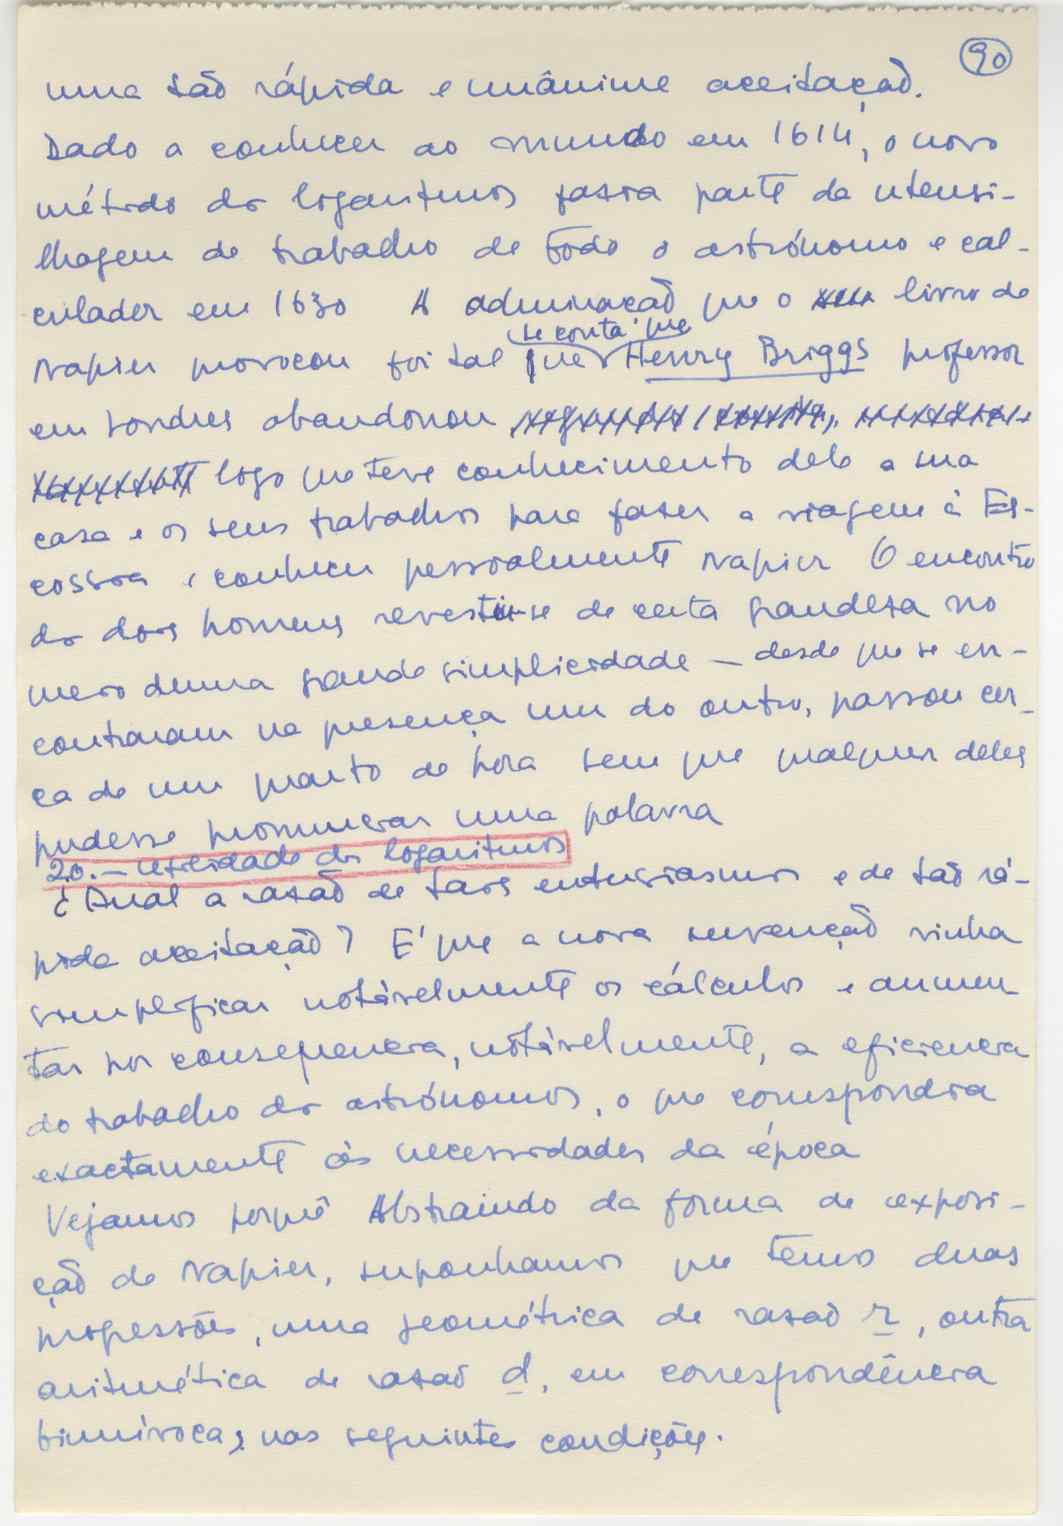 90
uma tão rápida e unânime aceitação.
Dado a conhecer ao mundo em 1614, o novo
método dos logaritmos fazia parte da utensi-
lhagem de trabalho de todo o astrónomo e cal-
culador em 1630 A admiração que o livro de
se conta que
Napier provocou foi tal que Henry Briggs professor
em Londres abandonou
logo que teve conhecimento dele a sua
casa e os seus trabalhos para fazer a viagem à Es-
cossia e conhecer pessoalmente Napier O encontro
dos dois homens revestiu-se de certa grandeza no
meio duma grande simplicidade — desde que se en-
contraram na presença um do outro, passou cer-
ca de um quarto de hora sem que qualquer deles
pudesse pronunciar uma palavra
20. — Utilidade dos logaritmos
¿ Qual a razão de tais entusiasmos e de tão rá-
pida aceitação? E' que a nova invenção vinha
simplificar notávelmente os cálculos e aumen
tar por consequencia, notávelmente, a eficiencia
do trabalho dos astrónomos, o que correspondia
exactamente às necessidades da época
Vejamos porquê Abstraindo da forma de exposi-
ção de Napier, suponhamos que temos duas
progressões, uma geométrica de razão r, outra
aritmética de razão d, em correspondência
biunívoca, nas seguintes condições.